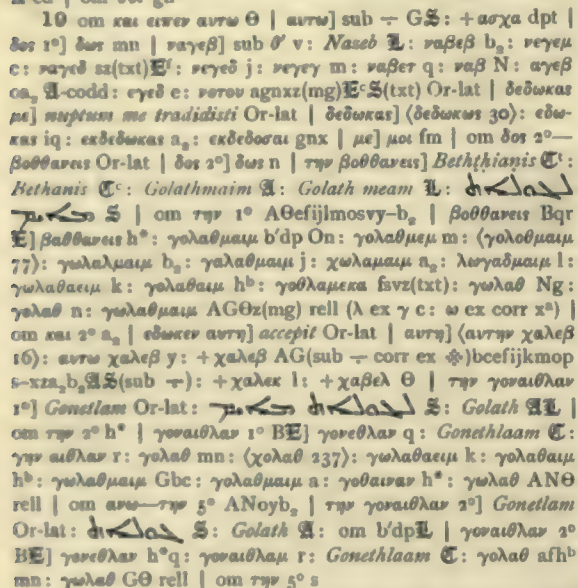 19 om και ειπεν αυτω Θ | αυτω] sub ÷ G𝕾: + ασχα dpt |
δος 1°] δως mn | ναγεβ] sub θ′ v: Naseb 𝕷: ναβεβ b₂: νεγεμ
c: ναγεδ sz(txt)𝕰ᶠ: νεγεδ j: νεγεγ m: ναβετ q: ναβ N: αγεβ
oa₂ 𝕬-codd: εγεδ e: νοτον agnxz(mg)𝕰ᶜ𝕾(txt) Or-lat | δεδωκας
με] nuptum me tradidisti Or-lat | δεδωκας] ⟨δεδωκως 30⟩: εδω-
κας iq: εκδεδωκας a₂: εκδεδοσαι gnx | με] μοι fm | om δος 2°—
βοθθανεις Or-lat | δος 2°] δως n | την βοθθανεις] Beththianis 𝕮ᵗ:
Bethanis 𝕮ᶜ: Golathmaim 𝕬: Golath meam 𝕷:
𝕾 | om την 1° AΘefijlmosvy–b₂ | βοθθανεις Bqr
𝕰] βαθθανεις h*: γολαθμαιμ b′dp On: γολαθμεμ m: ⟨γολοθμαιμ
77⟩: γωλαλμαιμ b₂: γαλαθμαιμ j: χωλαμαιμ a₂: λωγαδμαιμ l:
γωλαθαειμ k: γολαθαιμ hᵇ: γοθλαμεκα fsvz(txt): γωλαθ Ng:
γολαθ n: γωλαθμαιμ AGΘz(mg) rell (λ ex γ c: ω ex corr xᵃ) |
om και 2° a₂ | εδωκεν αυτη] accepit Or-lat | αυτη] ⟨αυτην χαλεβ
16⟩: αυτω χαλεβ y: + χαλεβ AG(sub ÷ corr ex ※)bcefijkmop
s–xza₂b₂𝕬𝕾(sub ÷): + χαλεκ l: + χαβελ Θ | την γοναιθλαν
1°] Gonetlam Or-lat: 𝕾: Golath 𝕬𝕷 |
om την 2° h* | γοναιθλαν 1° B𝕰] γονεθλαν q: Gonethlaam 𝕮:
γην αιθλαν r: γολαθ mn: ⟨χολαθ 237⟩: γωλαθαειμ k: γολαθαιμ
hᵇ: γωλαθμαιμ Gbc: γολαθμαιμ a: γοθαιναν h*: γωλαθ ANΘ
rell | om ανω—την 5° ANoyb₂ | την γοναιθλαν 2°] Gonetlam
Or-lat: 𝕾: Golath 𝕬: om b′dp𝕷 | γοναιθλαν 2°
B𝕰] γονεθλαν h*q: γοναιθλαμ r: Gonethlaam 𝕮: γολαθ afhᵇ
mn: γωλαθ GΘ rell | om την 5° s